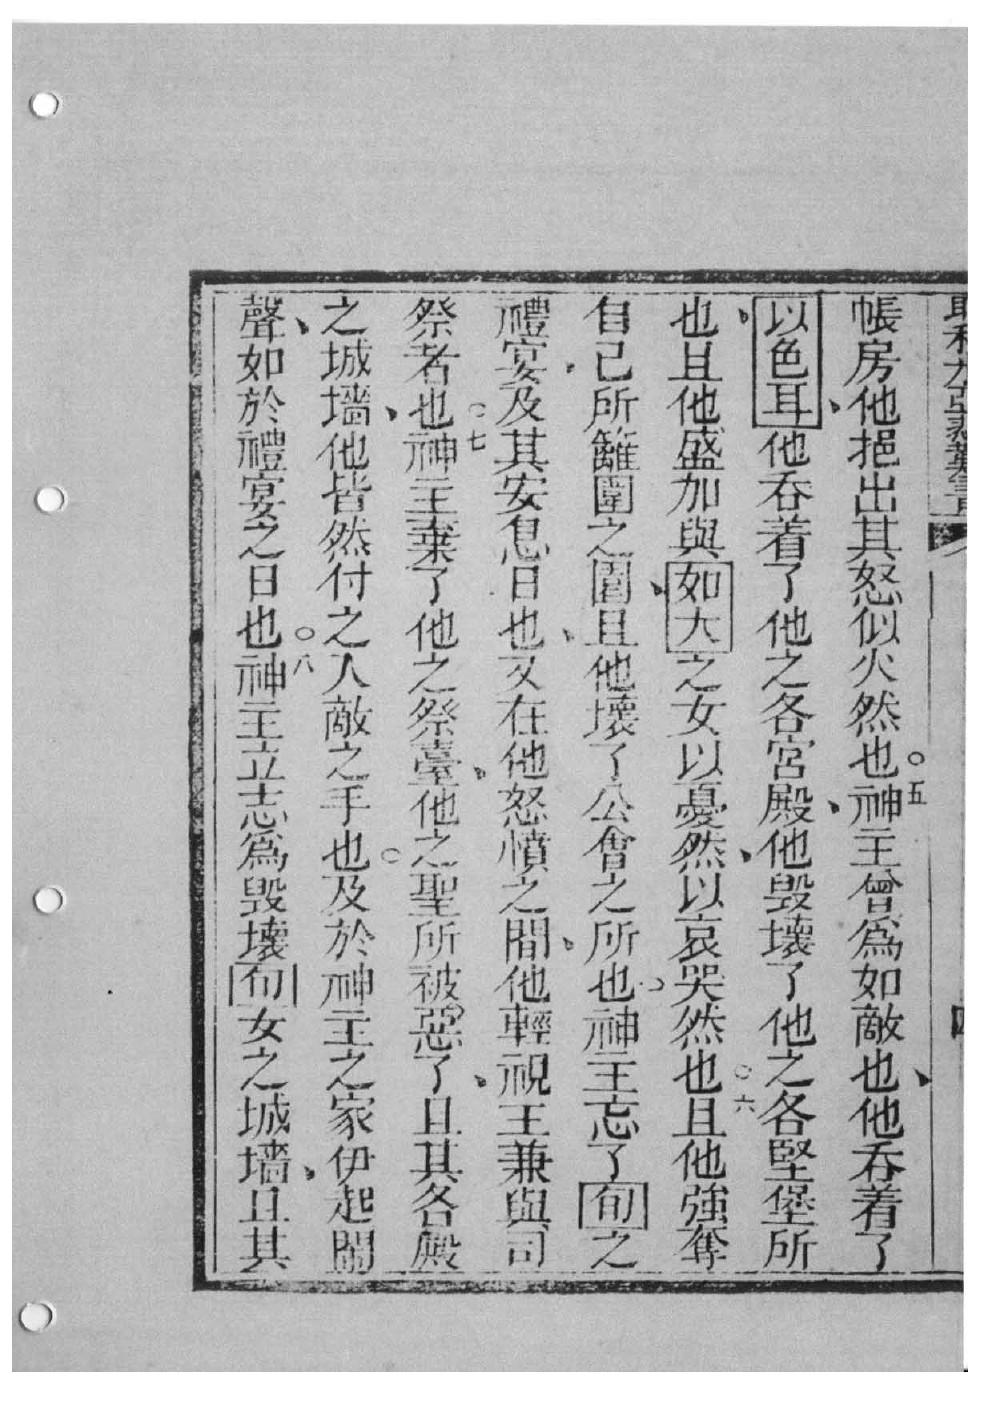 帳房他挹出其怒似火然也○五神主曾爲如敵也、他吞着了
以色耳、他吞着了他之各宮殿、他毀壞了他之各堅堡所
也、且他盛加與如大之女以憂然、以哀哭然也○六且他強奪
自己所籬圍之園、且他壞了公會之所也、神主忘了旬之
禮宴、及其安息日也、又在他怒憤之間、他輕視王兼與司
祭者也○七神主棄了他之祭臺、他之聖所被惡了、且其各殿
之城墻、他皆然付之人敵之手也○及於神主之家伊起鬧
聲、如於禮宴之日也○八神主立志爲毀壞旬女之城墻、且其